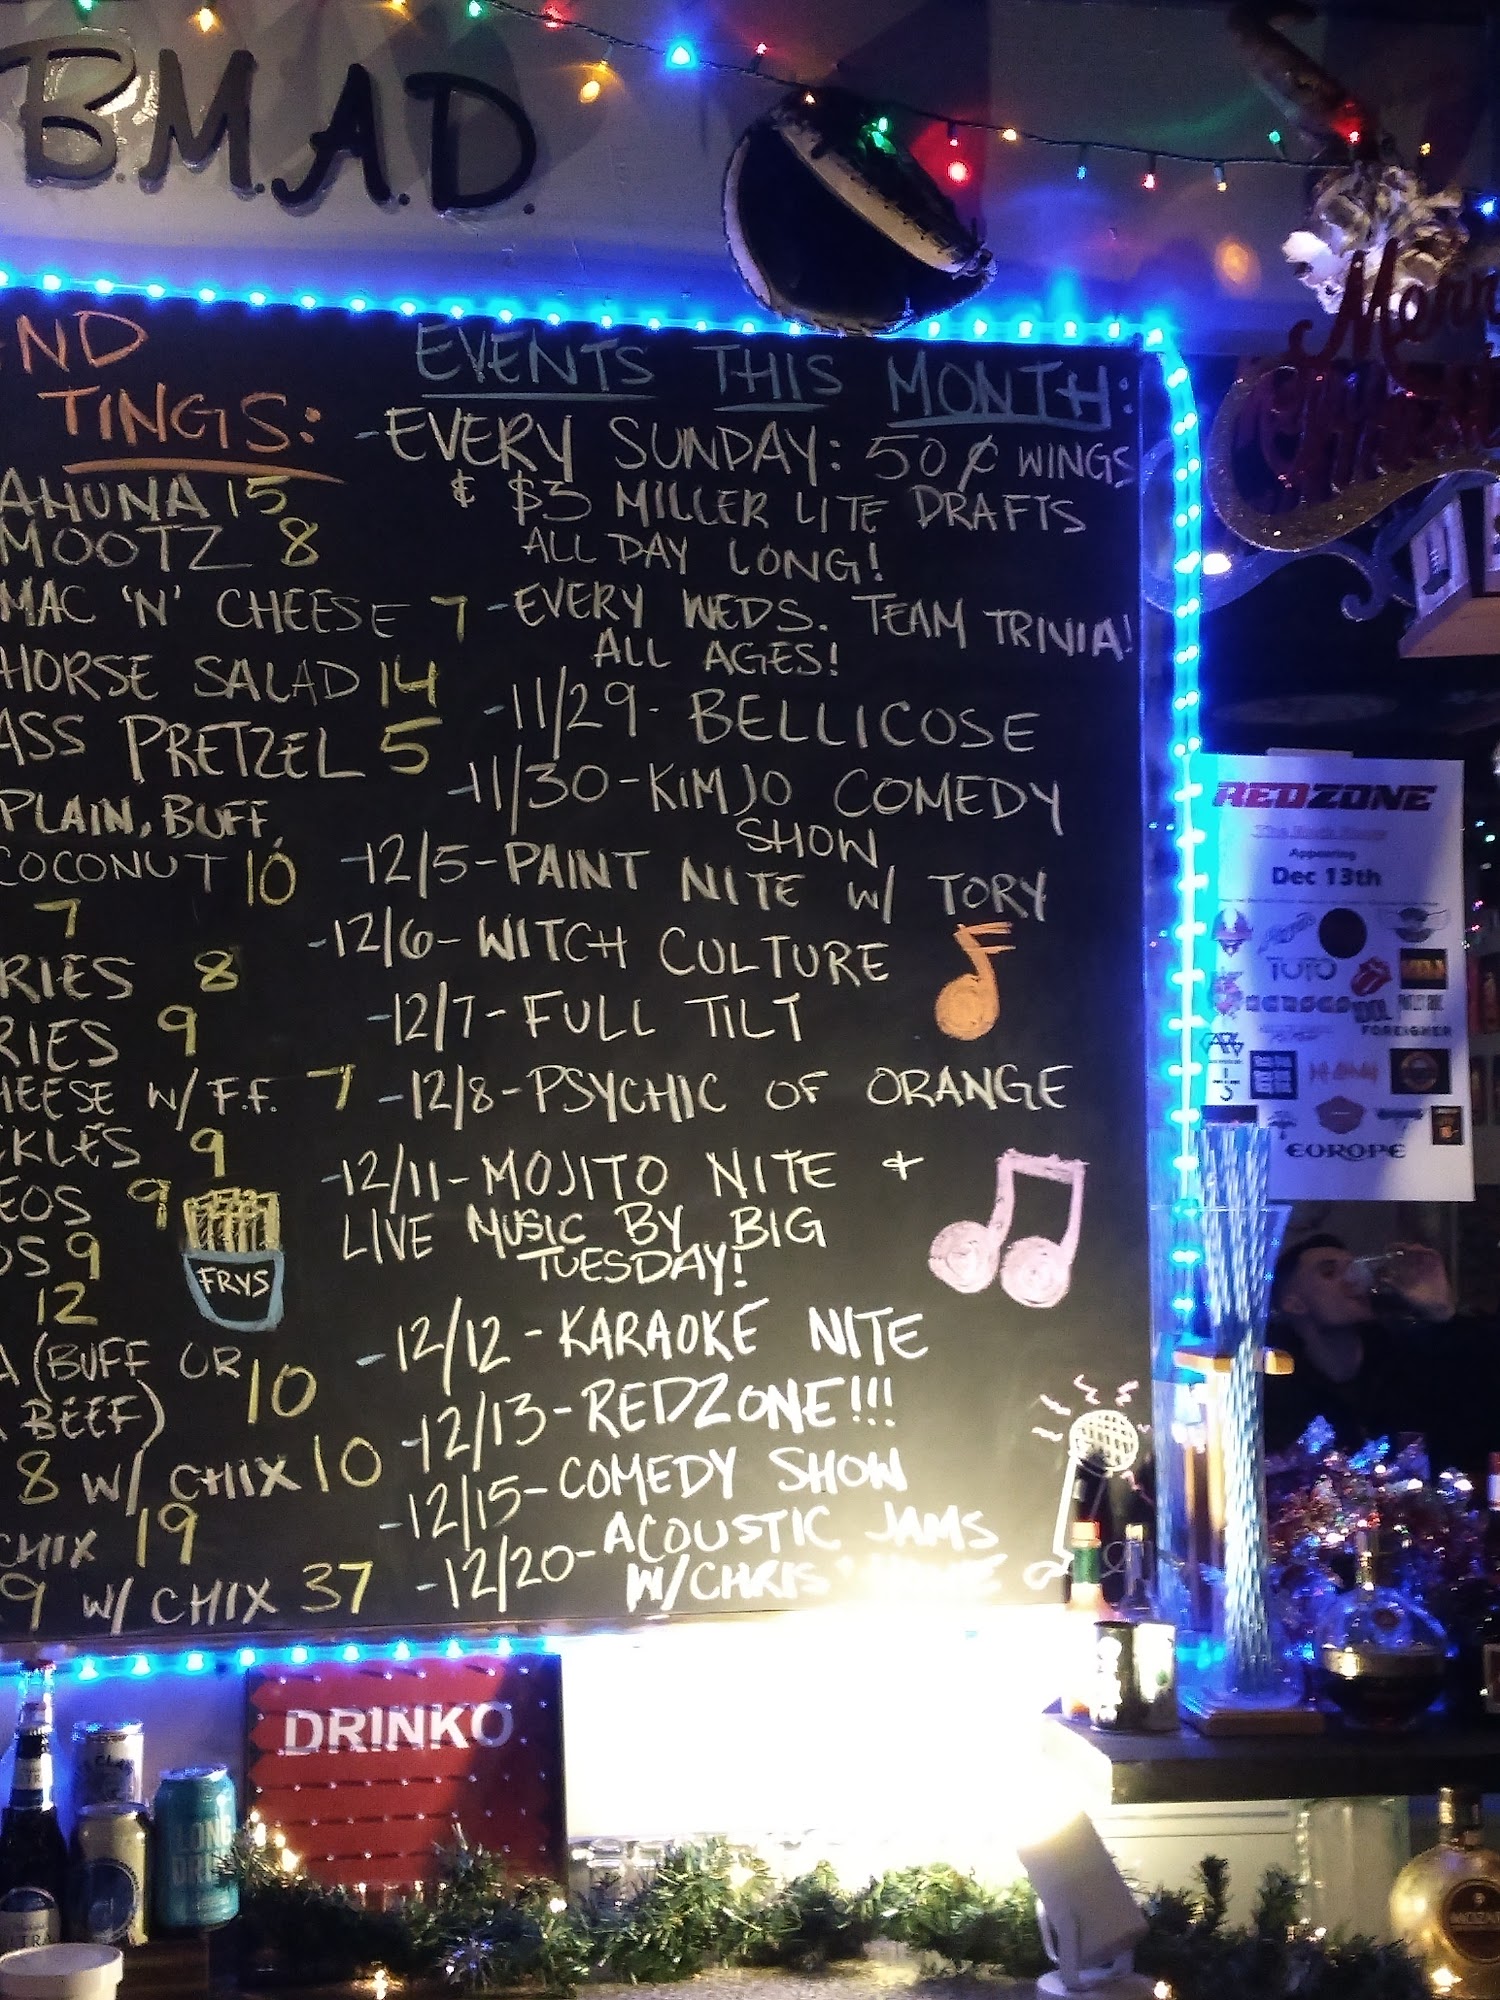 B.M.A.D.
ND
TINGS:
AHUNA 15
MOOTZ 8
MAC 'N' CHEESE 7
HORSE SALAD 14
ASS PRETZEL 5
PLAIN, BUFF,
COCONUT 10
7
RIES 8
RIES 9
HEESE W/ F.F. 7
CKLES 9
EOS 9
DS 9
12
A (BUFF OR 10
BEEF)
8 W/ CHIX 10
CHIX 19
9 W/ CHIX 37
FRYS
EVENTS THIS MONTH:
-EVERY SUNDAY: 50¢ WINGS
& $3 MILLER LITE DRAFTS
ALL DAY LONG!
-EVERY WEDS. TEAM TRIVIA!
ALL AGES!
-11/29- BELLICOSE
-11/30-KIMJO COMEDY
SHOW
-12/5-PAINT NITE W/ TORY
-12/6-WITCH CULTURE
-12/7-FULL TILT
-12/8-PSYCHIC OF ORANGE
-12/11-MOJITO NITE +
LIVE MUSIC BY BIG
TUESDAY!
-12/12-KARAOKE NITE
-12/13-REDZONE!!!
-12/15-COMEDY SHOW
-12/20-ACOUSTIC JAMS
W/CHRIS
Merry
REDZONE
Appearing
Dec 13th
TOTO
FOREIGNER
EUROPE
DRINKO
LONG